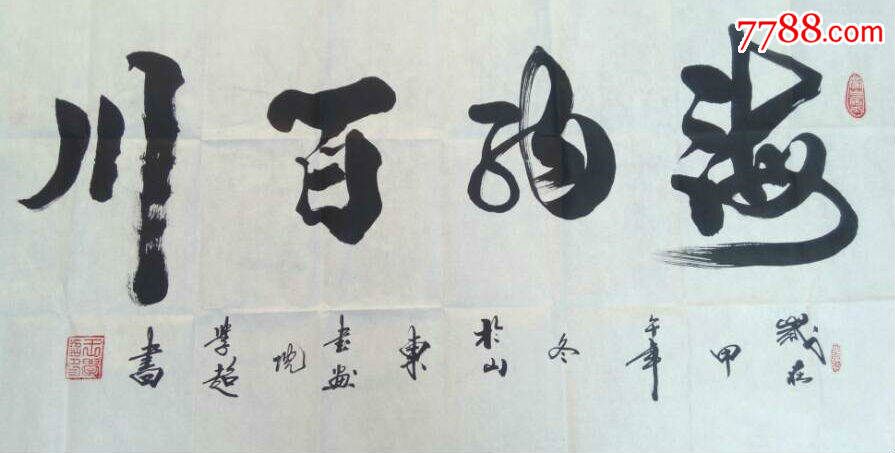 7788.com
海纳百川
歲在甲午年冬於山東书画院學超書